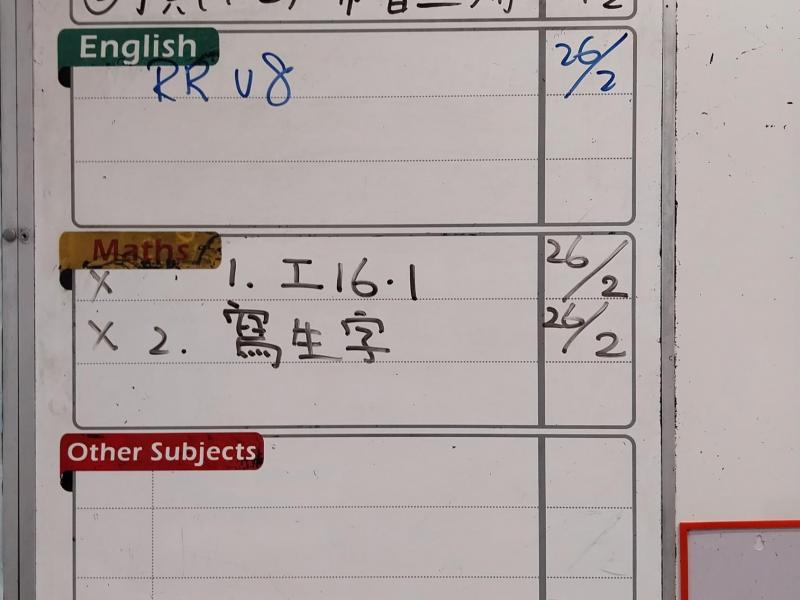 English
RR U8 26/2
Maths
X 1. 工16.1 26/2
X 2. 寫生字 26/2
Other Subjects